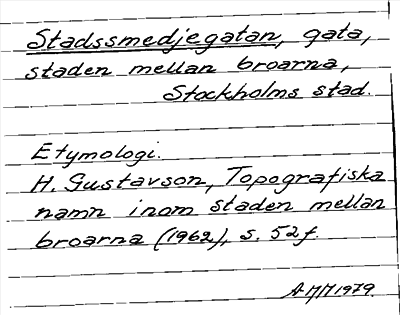 Stadssmedjegatan, gata,
staden mellan broarna,
Stockholms stad.
Etymologi.
H. Gustavson, Topografiska
namn inom staden mellan
broarna (1962), s. 52 f.
1979.